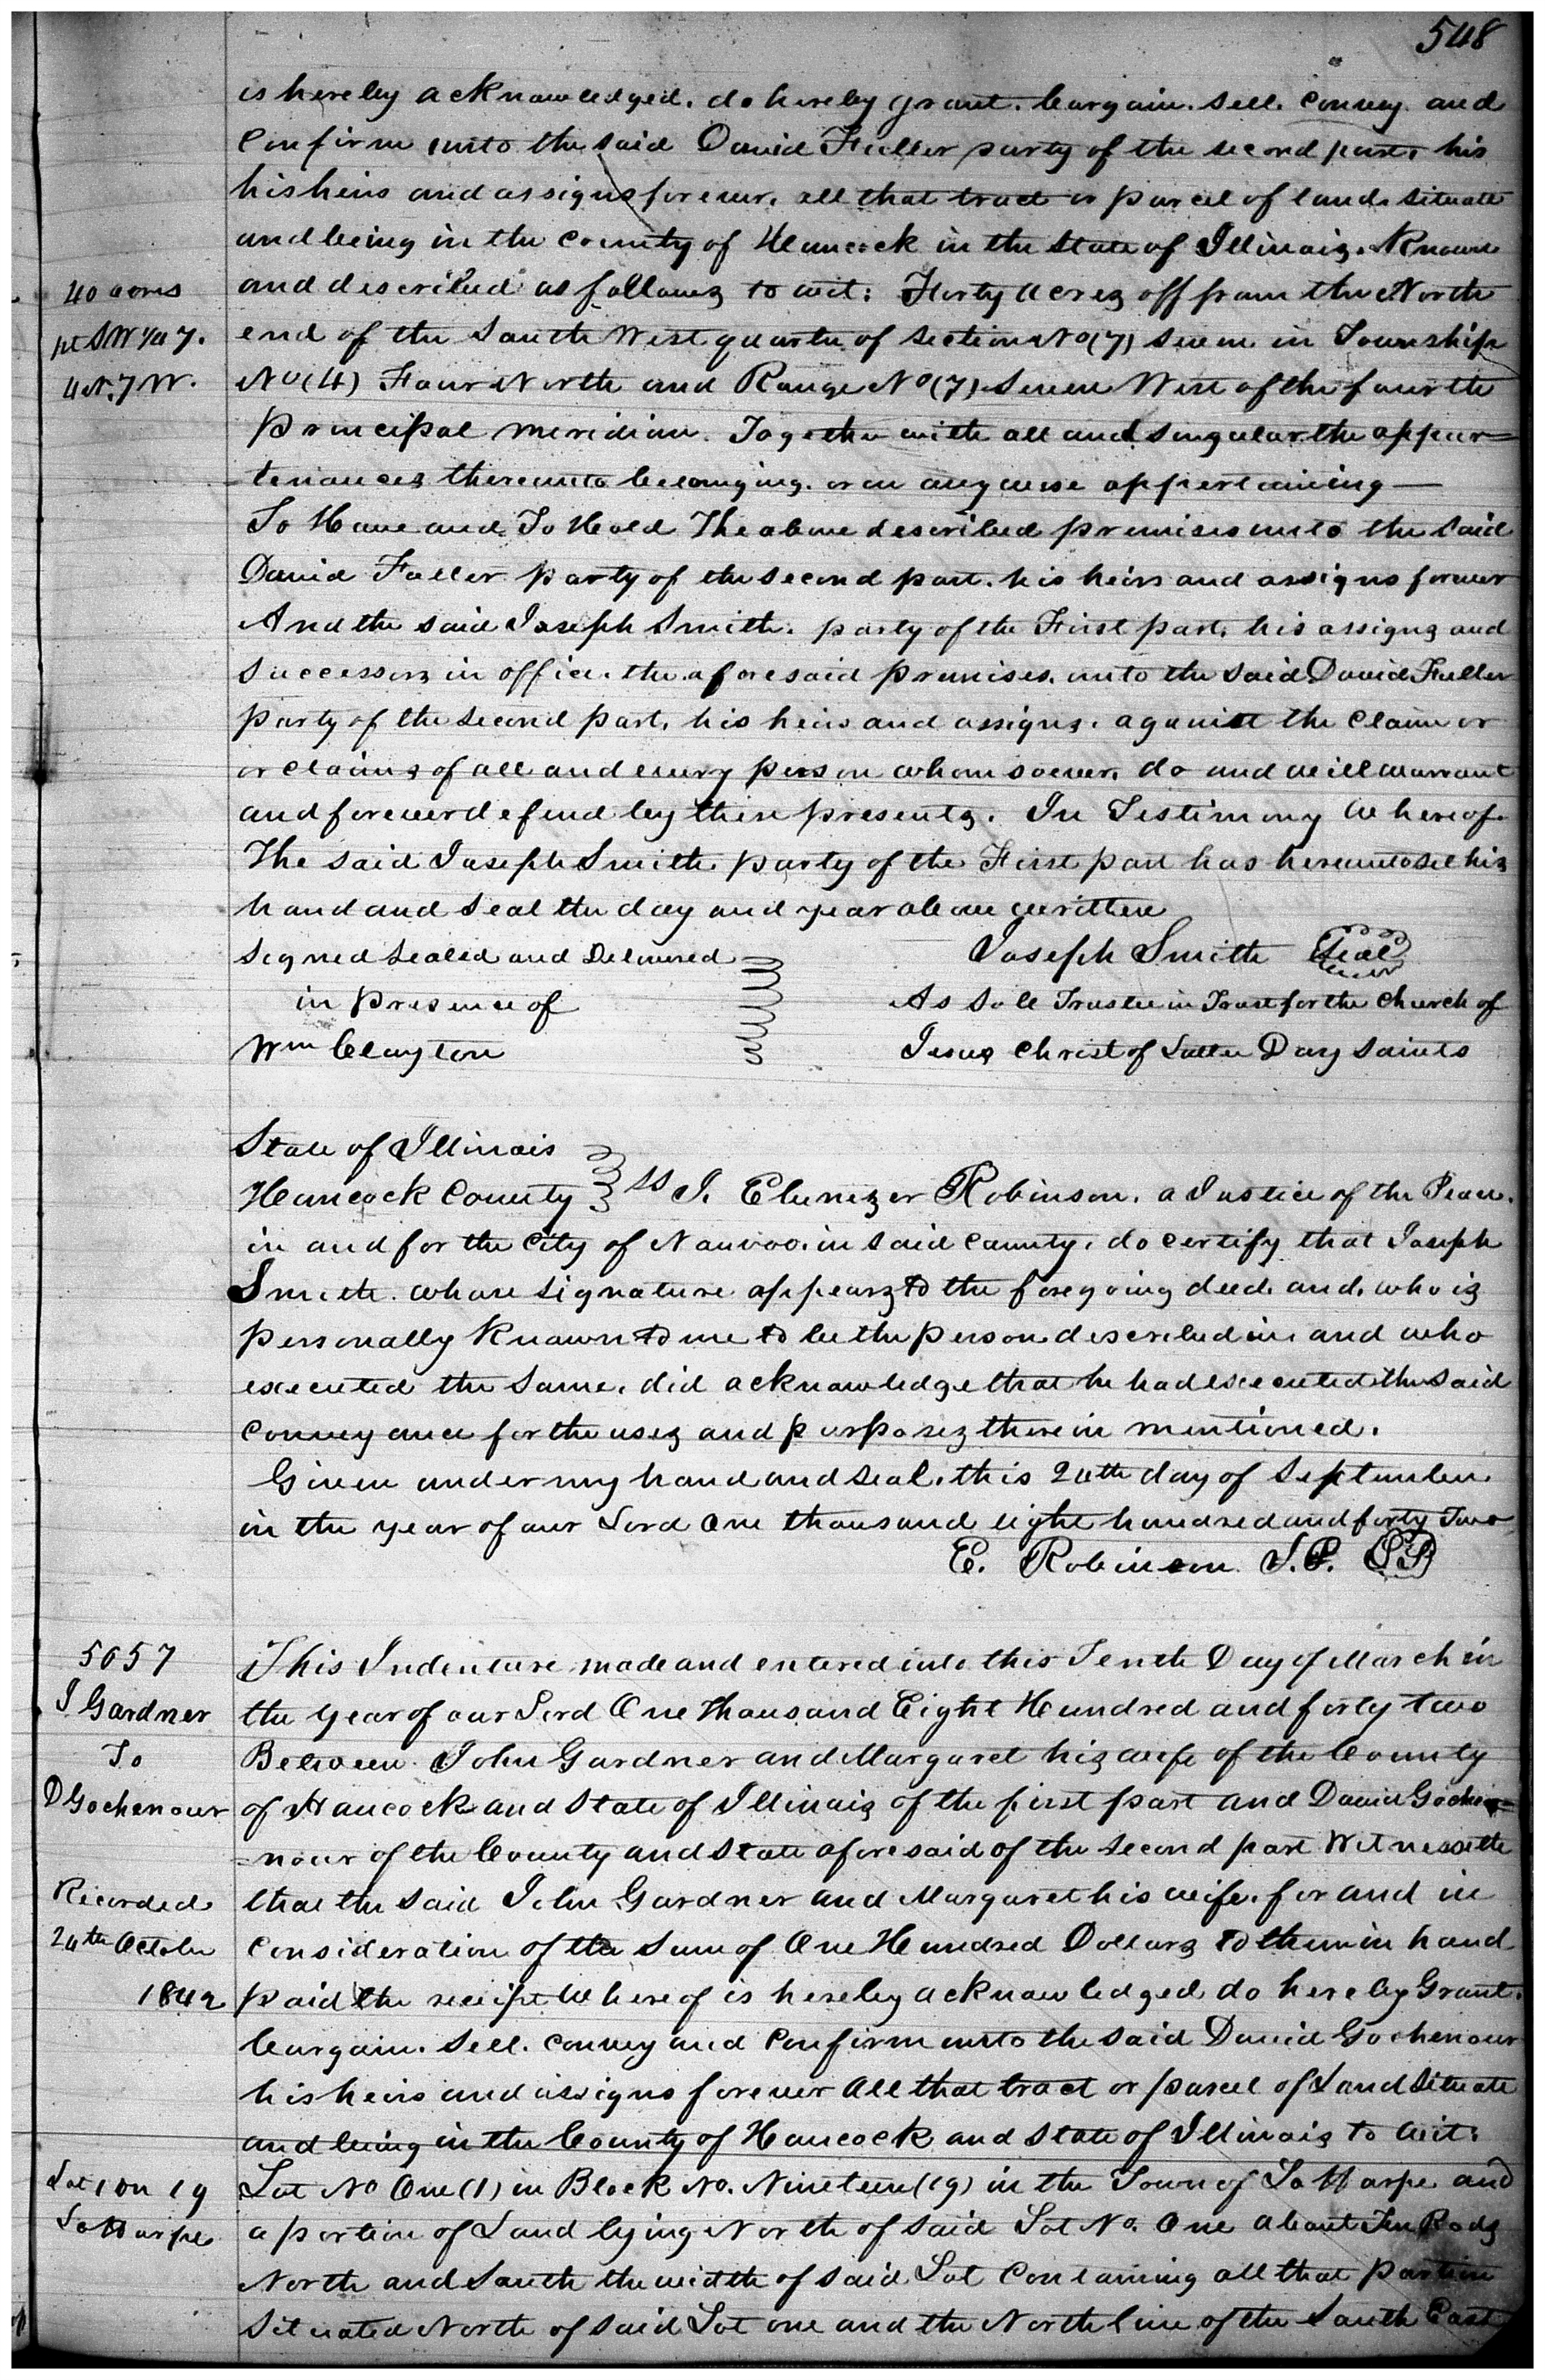 548
is hereby acknowledged. do hereby grant. bargain. sell. convey. and
Confirm unto the said David Fuller party of the second part, his
his heirs and assigns forever. all that tract or parcel of land. situate
and being in the county of Hancock in the State of Illinois. Known
40 acres
and described as follows to wit: Forty acres off from the North
pt SW 1/4 7.
end of the South West quarter of section No (7) seven in Township
4 N. 7 W.
No (4) Four North and Range No (7) Seven West of the fourth
Principal meridian. Together with all and singular the appur=
tenances thereunto belonging. or in anywise appertaining —
To Have and To Hold The above described premises unto the said
David Fuller party of the second part. his heirs and assigns forever
And the said Joseph Smith. party of the First part, his assigns and
successors in office. the aforesaid premises. unto the said David Fuller
party of the second part, his heirs and assigns. against the claim or
or claims of all and every person whomsoever. do and will warrant
and forever defend by these presents. In Testimony Whereof.
The said Joseph Smith party of the First part has hereunto set his
hand and seal the day and year above written
Signed Sealed and Delivered
Joseph Smith Seal
in presence of
As Sole Trustee in Trust for the Church of
Wm Clayton
Jesus Christ of Latter Day Saints
State of Illinois
Hancock County ss I. Ebenezer Robinson. a Justice of the Peace.
in and for the City of Nauvoo. in said County, do certify that Joseph
Smith. whose signature appears to the foregoing deed. and. who is
personally known to me to be the person described in. and who
executed the same. did acknowledge that he had executed the said
conveyance for the uses and purposes therein mentioned.
Given under my hand and seal. this 20th day of September
in the year of our Lord One thousand eight hundred and forty Two
E. Robinson. J.P.
5057
This Indenture made and entered into this Tenth Day of March in
J Gardner
the year of our Lord One Thousand Eight Hundred and forty two
To
Between John Gardner and Margaret his wife of the County
D Gochenour
of Hancock and State of Illinois of the first part and David Goche=
=nour of the County and State aforesaid of the second part Witnesseth
Recorded
that the said John Gardner and Margaret his wife. for and in
24th October
Consideration of the Sum of One Hundred Dollars to them in hand
1842
paid the receipt Whereof is hereby acknowledged do hereby Grant.
bargain. sell. convey and Confirm unto the said David Gochenour
his heirs and assigns forever All that tract or parcel of Land situate
and being in the County of Hancock and State of Illinois to wit:
Lot 1 on 19
Lot No One (1) in Block No. Nineteen (19) in the Town of La Harpe and
La Harpe
a portion of Land lying North of said Lot No. One about Ten Rods
North and South the width of said Lot Containing all that portion
Situated North of said Lot one and the North line of the South East